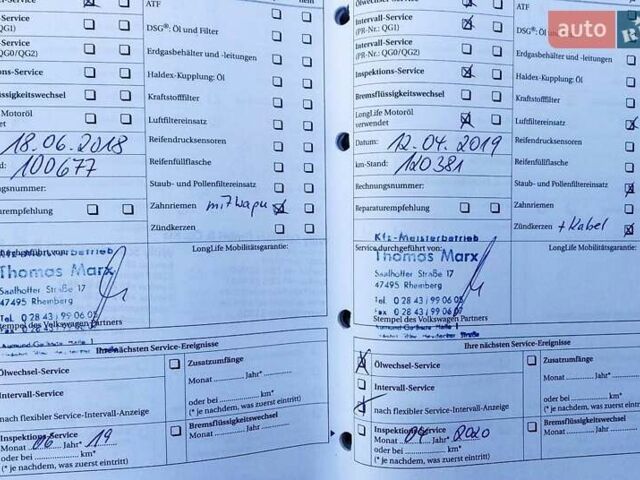 -Service
QG1)
-Service
QG0/QG2)
ons-Service
üssigkeitswechsel
Motoröl
18.06.2018
d: 100677
ngsnummer:
urempfehlung
ATF
DSG®: Öl und Filter
Erdgasbehälter und -leitungen
Haldex-Kupplung: Öl
Kraftstofffilter
Luftfiltereinsatz
Reifendrucksensoren
Reifenfüllflasche
Staub- und Pollenfiltereinsatz
Zahnriemen mit Wapu
Zündkerzen
LongLife Mobilitätsgarantie:
durchgeführt von:
Kfz-Meisterbetrieb
Thomas Marx
Saalhoffer Straße 17
47495 Rheinberg
Tel. 0 28 43 / 99 06 05
Stempel des Volkswagen Partners
Ihre nächsten Service-Ereignisse
Ölwechsel-Service
Intervall-Service
nach flexibler Service-Intervall-Anzeige
Inspektions-Service
Monat 06 Jahr* 19
oder bei km*
(* je nachdem, was zuerst eintritt)
Zusatzumfänge
Monat Jahr*
oder bei km*
(* je nachdem, was zuerst eintritt)
Bremsflüssigkeitswechsel
Monat Jahr
Ölwechsel-Service
Intervall-Service
(PR-Nr.: QG1)
Intervall-Service
(PR-Nr.: QG0/QG2)
Inspektions-Service
Bremsflüssigkeitswechsel
LongLife Motoröl
verwendet
Datum: 12.04.2019
km-Stand: 120381
Rechnungsnummer:
Reparaturempfehlung
ATF
DSG®: Öl und Filter
Erdgasbehälter und -leitungen
Haldex-Kupplung: Öl
Kraftstofffilter
Luftfiltereinsatz
Reifendrucksensoren
Reifenfüllflasche
Staub- und Pollenfiltereinsatz
Zahnriemen
Zündkerzen + Kabel
LongLife Mobilitätsgarantie:
Service durchgeführt von:
Kfz-Meisterbetrieb
Thomas Marx
Saalhoffer Straße 17
47495 Rheinberg
Tel. 0 28 43 / 99 06 05
Stempel des Volkswagen Partners
Ihre nächsten Service-Ereignisse
Ölwechsel-Service
Intervall-Service
nach flexibler Service-Intervall-Anzeige
Inspektions-Service
Monat 04 Jahr* 2020
oder bei km*
(* je nachdem, was zuerst eintritt)
Zusatzumfänge
Monat Jahr*
oder bei km*
(* je nachdem, was zuerst eintritt)
Bremsflüssigkeitswechsel
Monat Jahr
auto R